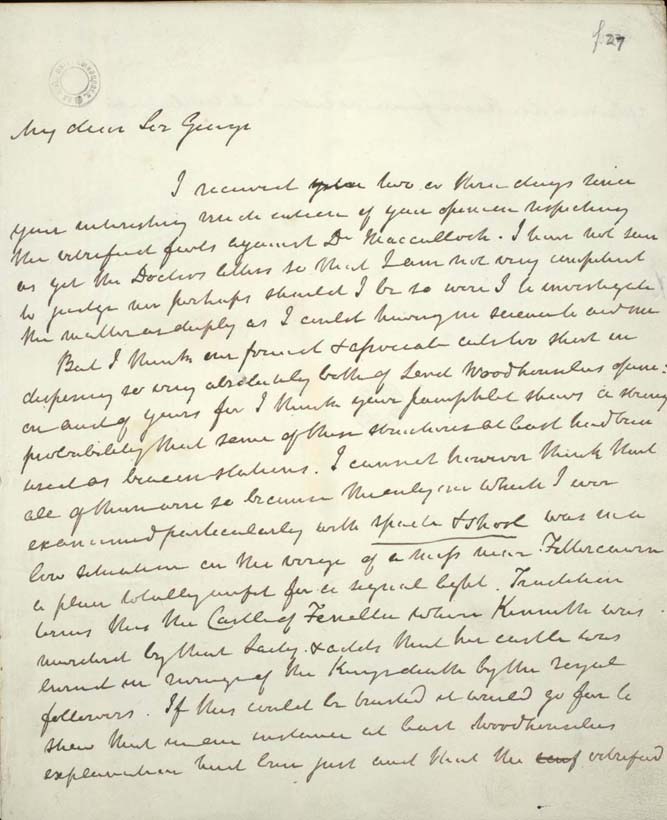 f. 27
My dear Sir George
I received two or three days since
your interesting vindication of your opinion respecting
the vitrified forts against Dr Macculloch. I have not seen
as yet the Doctors letters so that I am not very competent
to judge nor perhaps should I be so were I to investigate
the matter as deeply as I could having no scientific
But I think our friend & associate cuts too short in
dispensing so very absolutely both of Lord Woodhouselees opini-
on and of yours for I think your pamphlet shews a strong
probability that some of these structures at least had been
used as beacon stations. I cannot however think that
all of them were so because the only one which I ever
examined particularly with spade & shool was in a
low situation on the verge of a moss near Fettercairn
a place totally unfit for a signal light. Tradition
terms this the Castle of Fenella where Kenneth was
murderd by that Lady & adds that her castle was
burnd in revenge of the Kings death by the royal
followers. If this could be trusted it would go far to
shew that in one instance at least Woodhouselees
explanation had been just and that the vitrified